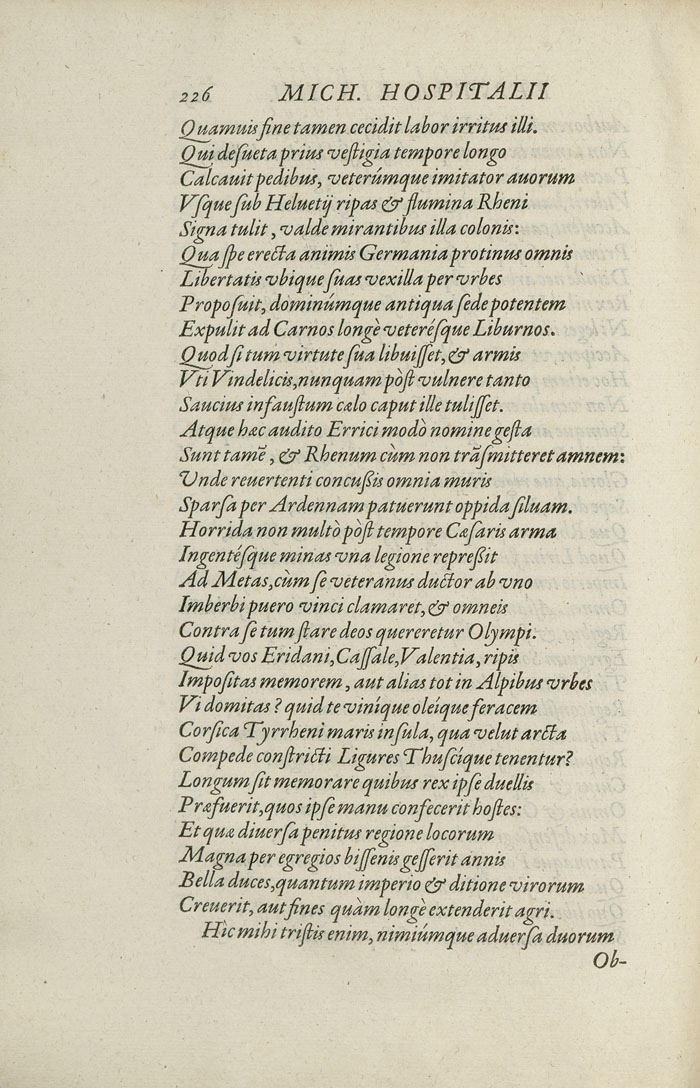 226 MICH. HOSPITALII
Quamuis fine tamen cecidit labor irritus illi.
Qui desueta prius vestigia tempore longo
Calcauit pedibus, veterúmque imitator auorum
Vsque sub Heluetij ripas & flumina Rheni
Signa tulit, valde mirantibus illa colonis:
Qua spe erecta animis Germania protinus omnis
Libertatis vbique suas vexilla per vrbes
Proposuit, dominúmque antiqua sede potentem
Expulit ad Carnos longè veterésque Liburnos.
Quod si tum virtute sua libuisset, & armis
Vti Vindelicis, nunquam pòst vulnere tanto
Saucius infaustum cælo caput ille tulisset.
Atque hæc audito Errici modò nomine gesta
Sunt tamē, & Rhenum cùm non trāsmitteret amnem:
Vnde reuertenti concussis omnia muris
Sparsa per Ardennam patuerunt oppida siluam.
Horrida non multò pòst tempore Cæsaris arma
Ingentésque minas vna legione repressit
Ad Metas, cùm se veteranus ductor ab vno
Imberbi puero vinci clamaret, & omneis
Contra se tum stare deos quereretur Olympi.
Quid vos Eridani, Cassale, Valentia, ripis
Impositas memorem, aut alias tot in Alpibus vrbes
Vi domitas? quid te viníque oleíque feracem
Corsica Tyrrheni maris insula, qua velut arcta
Compede constricti Ligures Thuscíque tenentur?
Longum sit memorare quibus rex ipse duellis
Præfuerit, quos ipse manu confecerit hostes:
Et quæ diuersa penitus regione locorum
Magna per egregios bissenis gesserit annis
Bella duces, quantum imperio & ditione virorum
Creuerit, aut fines quàm longè extenderit agri.
Hîc mihi tristis enim, nimiúmque aduersa duorum
Ob-